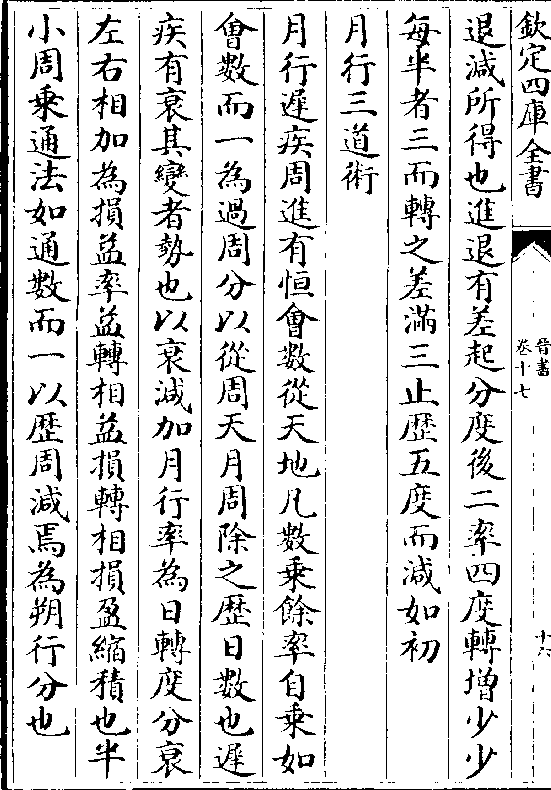 欽定四庫全書
晉書
卷十七
十六
退減所得也進退有差起分度後二率四度轉增少少
每半者三而轉之差滿三止歴五度而減如初
月行三道術
月行遲疾周進有恒會數從天地凡數乗餘率自乗如
會數而一為過周分以從周天月周除之歴日數也遲
疾有衰其變者勢也以衰減加月行率為日轉度分衰
左右相加為損益率益轉相益損轉相損盈縮積也半
小周乗通法如通數而一以歴周減焉為朔行分也